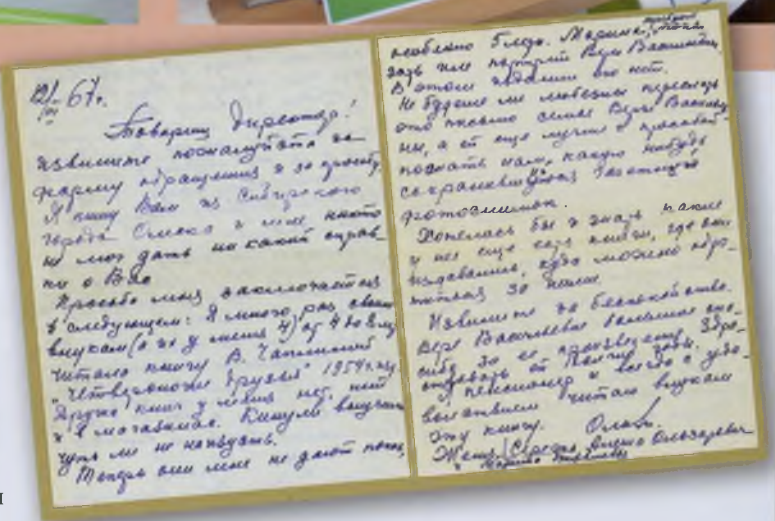 12/III-67г.
Товарищ директор!
Извините пожалуйста за
форму обращения и за просьбу.
Я пишу Вам из Сибирского
города Омска и мне никто
не мог дать никакой справ-
ки о Вас
Просьба моя заключается
в следующем: Я много раз своим
внукам (а их у меня 4) от 4 до 8 лет
читала книгу В. Чаплиной
"Четвероногие друзья" 1954г. изд.
Других книг у меня нет, нет
и в магазинах. Книгу внучата
чуть ли не наизусть.
Теперь они мне не дают покоя,
особенно 5 лет. Марина,
дать мне портрет Веры Васильевны,
в этом издании его нет.
Не будете ли любезны переслать
это письмо самой Вере Василь-
евне, а ей еще лучше и просьбой
послать нам, какую нибудь
сохранившуюся
фотоснимок.
Хотелось бы и знать какие
у нее еще есть книги, где они
издавались, куда можно обра-
титься за ними.
Извините за беспокойство.
Вере Васильевне большое спа-
сибо за ее произведения
от
Я пенсионер и всегда с удо-
вольствием читаю внукам
эту книгу.
Омск.
Марина